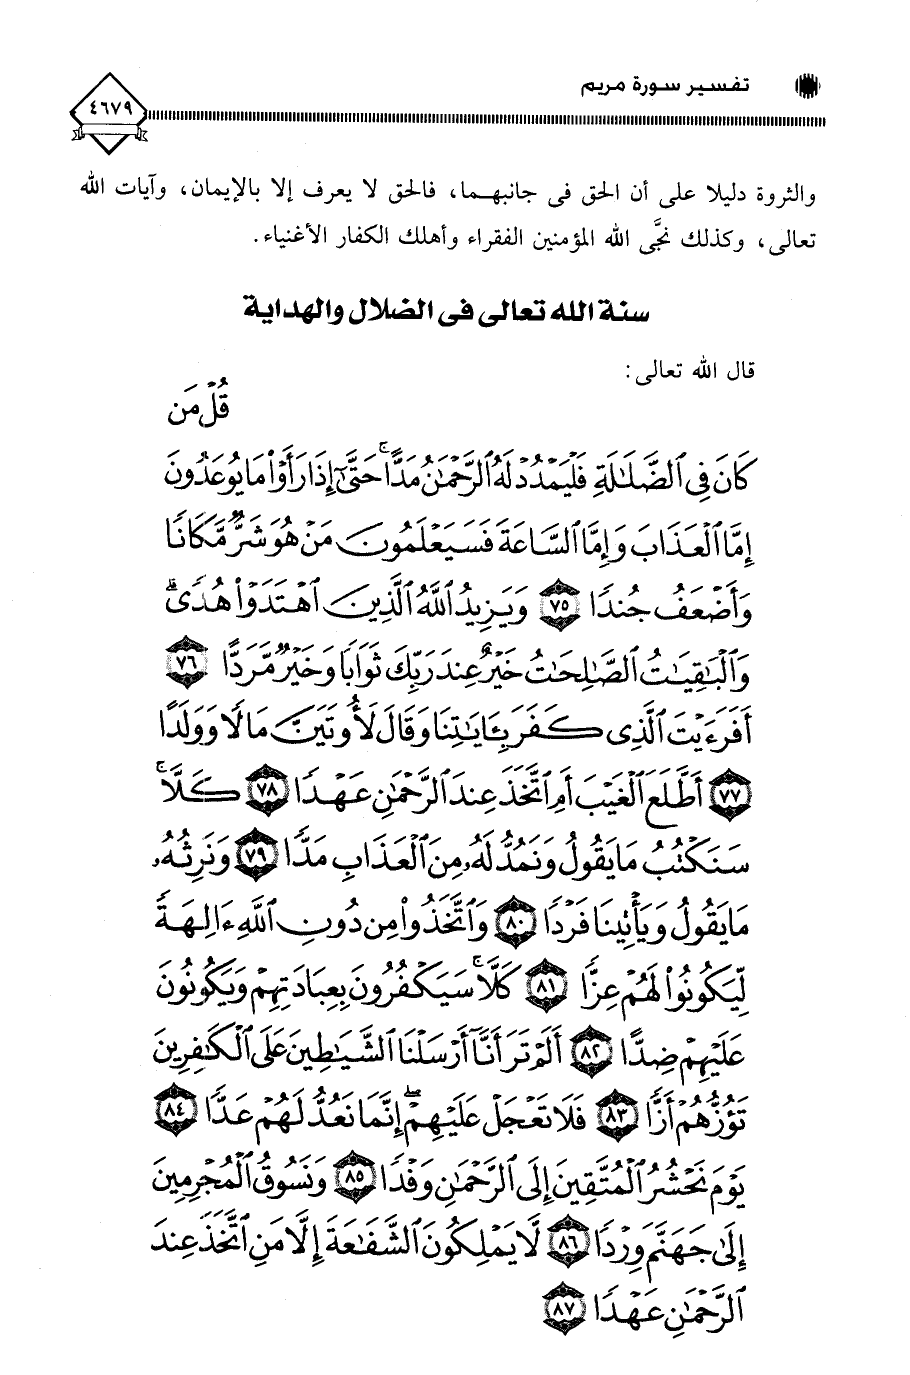 تفسير سورة مريم
٤٦٧٩
والثروة دليلا على أن الحق فى جانبهما، فالحق لا يعرف إلا بالإيمان، وآيات الله
تعالى، وكذلك نجَّى الله المؤمنين الفقراء وأهلك الكفار الأغنياء.
سنة الله تعالى فى الضلال والهداية
قال الله تعالى:
قُلْ مَن
كَانَ فِى ٱلضَّلَـٰلَةِ فَلْيَمْدُدْ لَهُ ٱلرَّحْمَـٰنُ مَدًّا ۚ حَتَّىٰٓ إِذَا رَأَوْا۟ مَا يُوعَدُونَ
إِمَّا ٱلْعَذَابَ وَإِمَّا ٱلسَّاعَةَ فَسَيَعْلَمُونَ مَنْ هُوَ شَرٌّ مَّكَانًا
وَأَضْعَفُ جُندًا ٧٥ وَيَزِيدُ ٱللَّهُ ٱلَّذِينَ ٱهْتَدَوْا۟ هُدًى ۗ
وَٱلْبَـٰقِيَـٰتُ ٱلصَّـٰلِحَـٰتُ خَيْرٌ عِندَ رَبِّكَ ثَوَابًا وَخَيْرٌ مَّرَدًّا ٧٦
أَفَرَءَيْتَ ٱلَّذِى كَفَرَ بِـَٔايَـٰتِنَا وَقَالَ لَأُوتَيَنَّ مَالًا وَوَلَدًا
٧٧ أَطَّلَعَ ٱلْغَيْبَ أَمِ ٱتَّخَذَ عِندَ ٱلرَّحْمَـٰنِ عَهْدًا ٧٨ كَلَّا ۚ
سَنَكْتُبُ مَا يَقُولُ وَنَمُدُّ لَهُۥ مِنَ ٱلْعَذَابِ مَدًّا ٧٩ وَنَرِثُهُۥ
مَا يَقُولُ وَيَأْتِينَا فَرْدًا ٨٠ وَٱتَّخَذُوا۟ مِن دُونِ ٱللَّهِ ءَالِهَةً
لِّيَكُونُوا۟ لَهُمْ عِزًّا ٨١ كَلَّا ۚ سَيَكْفُرُونَ بِعِبَادَتِهِمْ وَيَكُونُونَ
عَلَيْهِمْ ضِدًّا ٨٢ أَلَمْ تَرَ أَنَّآ أَرْسَلْنَا ٱلشَّيَـٰطِينَ عَلَى ٱلْكَـٰفِرِينَ
تَؤُزُّهُمْ أَزًّا ٨٣ فَلَا تَعْجَلْ عَلَيْهِمْ ۖ إِنَّمَا نَعُدُّ لَهُمْ عَدًّا ٨٤
يَوْمَ نَحْشُرُ ٱلْمُتَّقِينَ إِلَى ٱلرَّحْمَـٰنِ وَفْدًا ٨٥ وَنَسُوقُ ٱلْمُجْرِمِينَ
إِلَىٰ جَهَنَّمَ وِرْدًا ٨٦ لَّا يَمْلِكُونَ ٱلشَّفَـٰعَةَ إِلَّا مَنِ ٱتَّخَذَ عِندَ
ٱلرَّحْمَـٰنِ عَهْدًا ٨٧